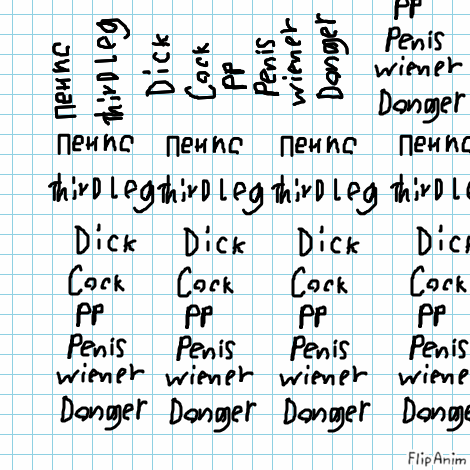 пенис thirD leg Dick Cock PP Penis wiener Danger
PP
Penis
wiener
Danger
пенис пенис пенис пенис
thirD leg thirD leg thirD leg thirD le
Dick Dick Dick Dick
Cock Cock Cock Cock
PP PP PP PP
Penis Penis Penis Penis
wiener wiener wiener wiener
Danger Danger Danger Dange
FlipAnim